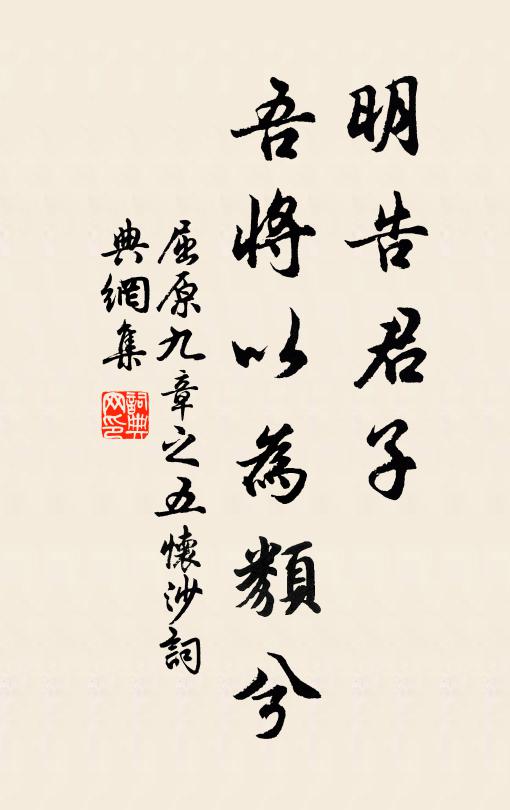 明告君子
吾將以為類兮
屈原九章之五懷沙詞
典網集
詞典
网印